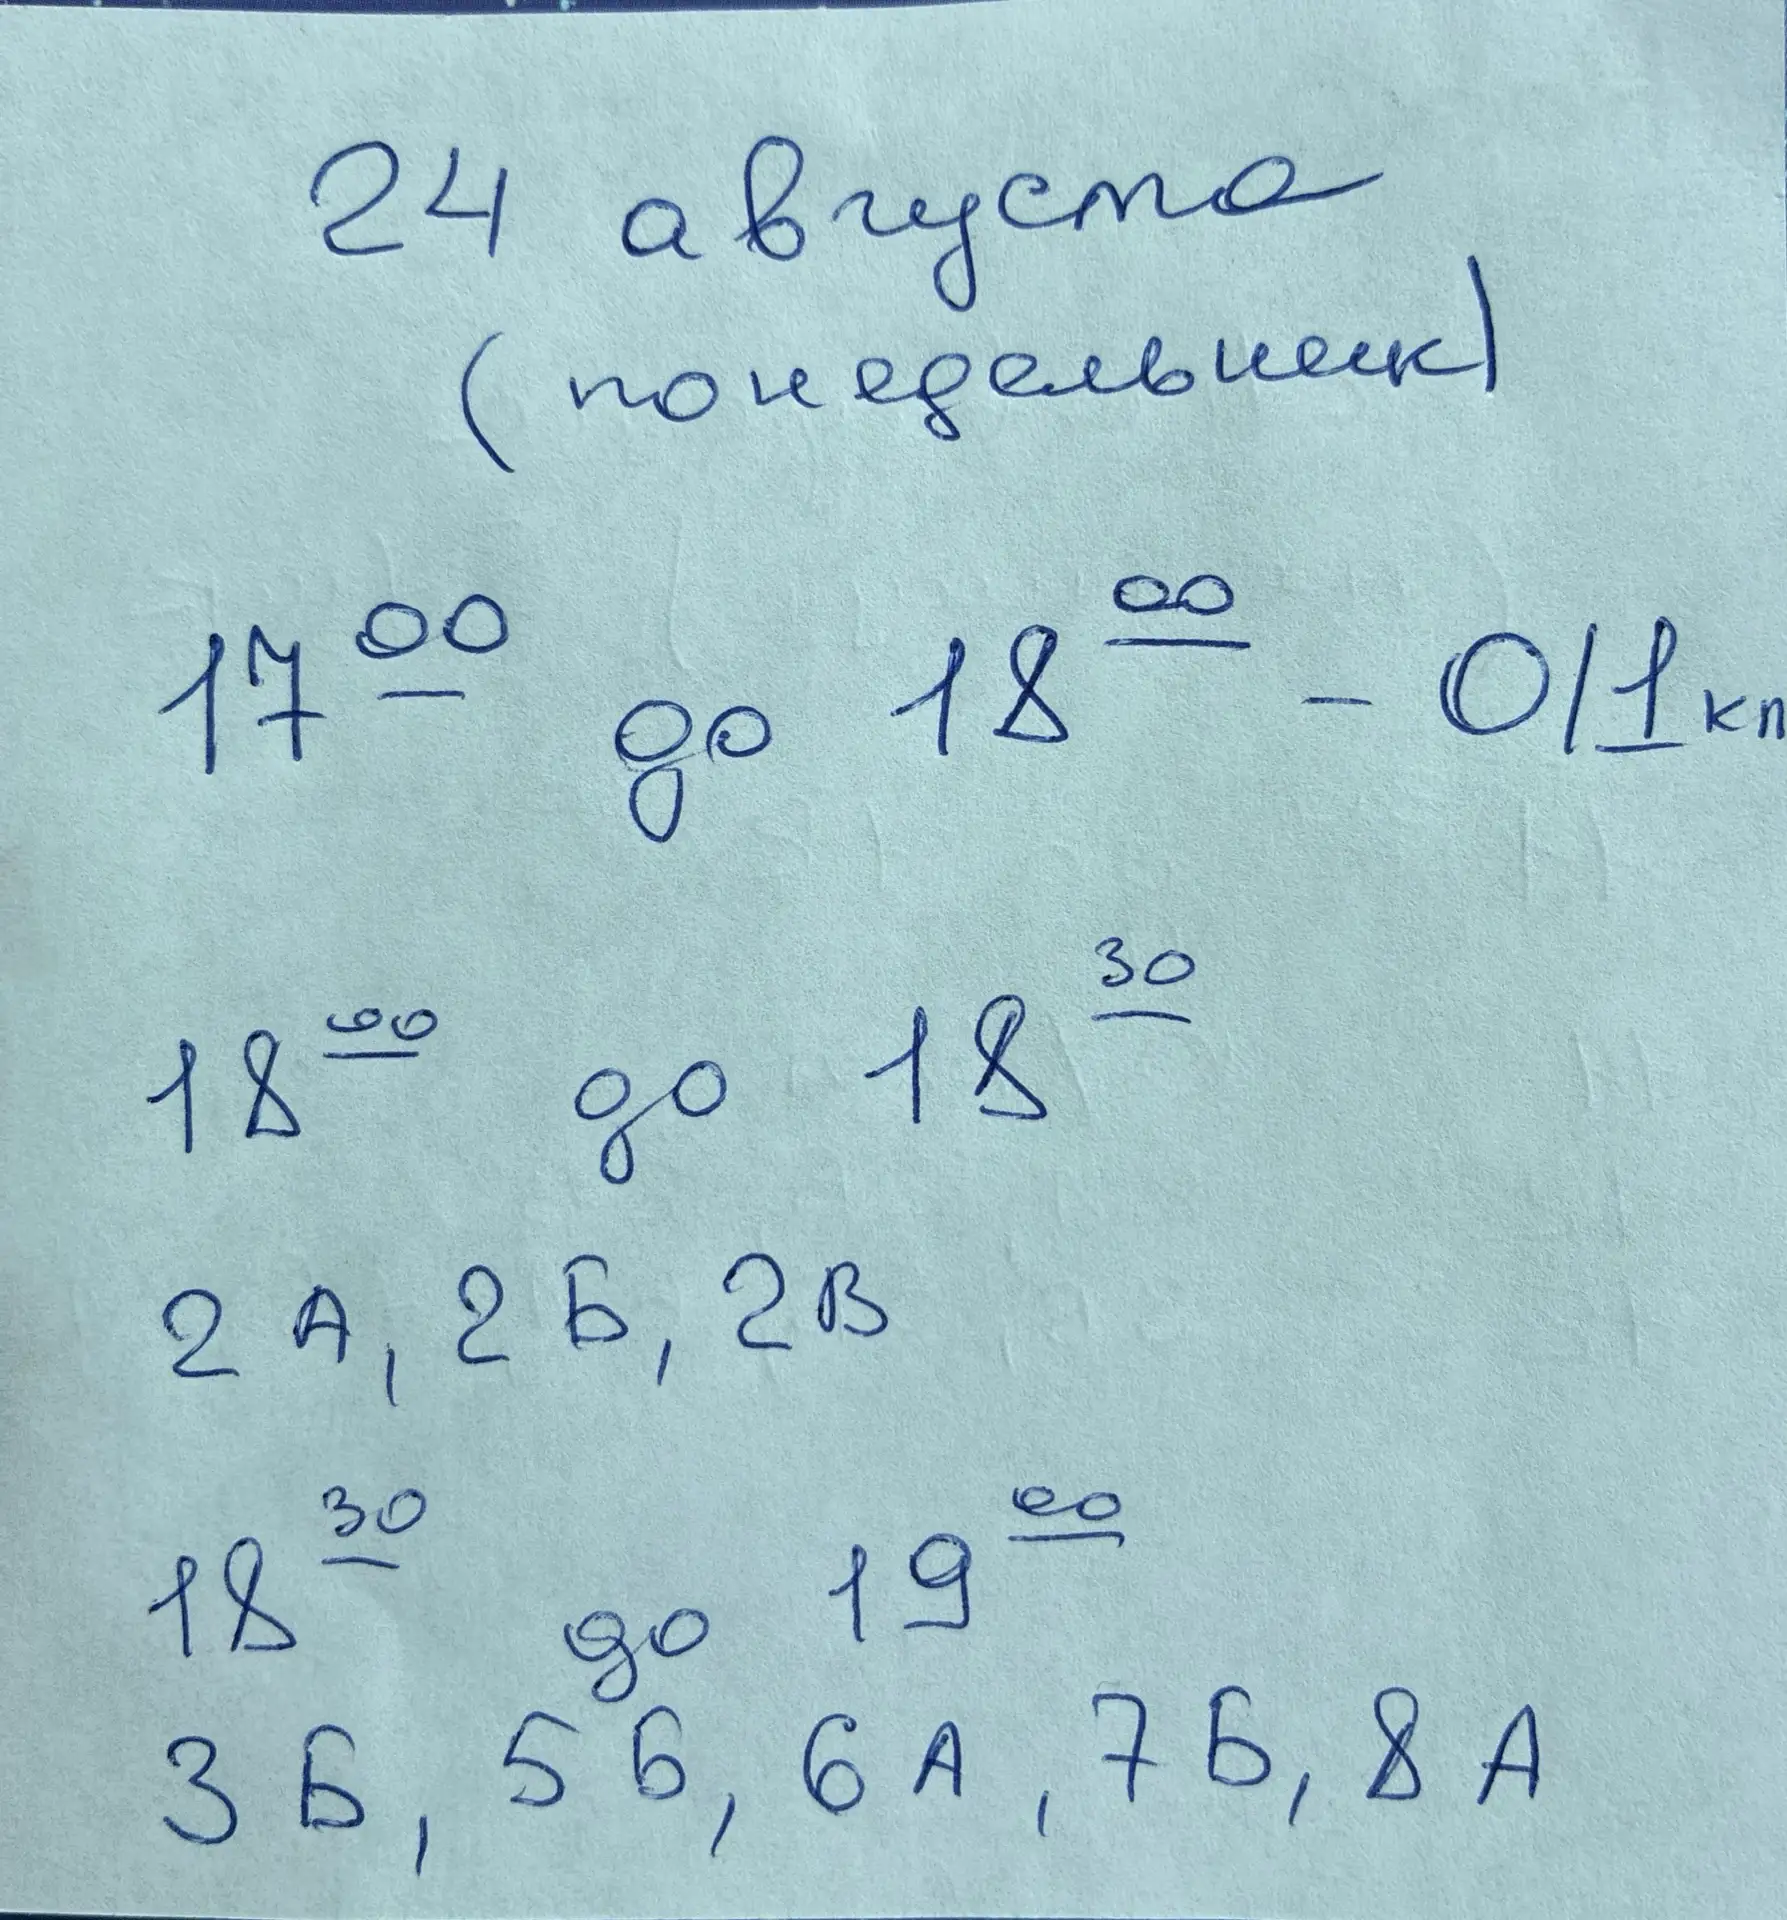 24 августа
(понедельник)
17 00 до 18 00 - 0/1 кп
18 00 до 18 30
2 А, 2 Б, 2 В
18 30 до 19 00
3 Б, 5 Б, 6 А, 7 Б, 8 А